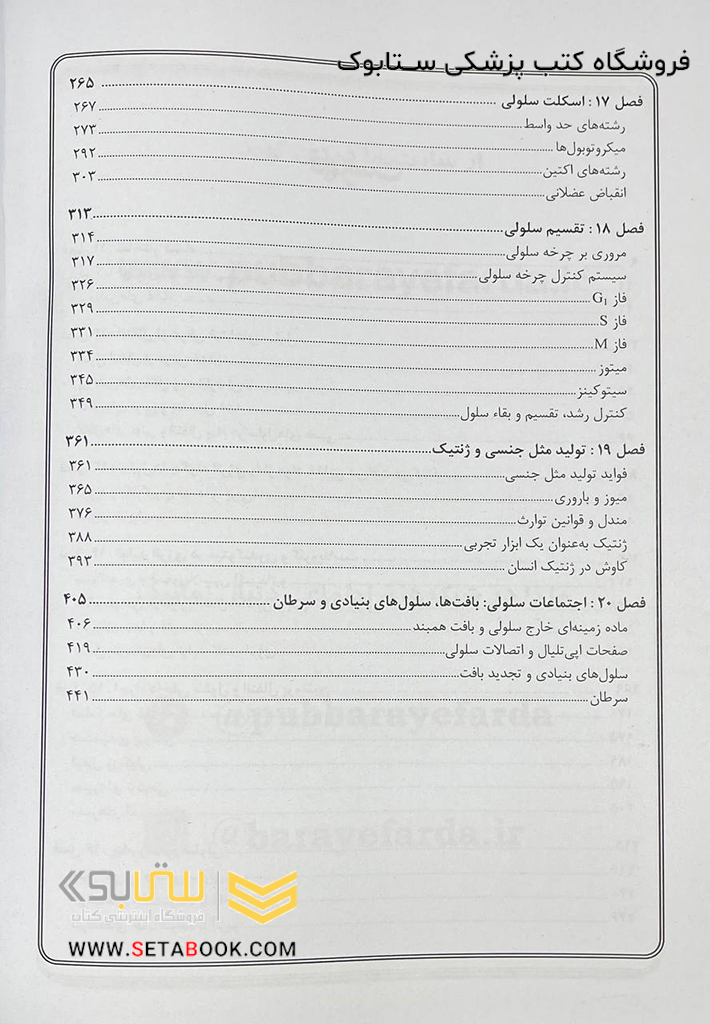 فروشگاه کتب پزشکی ســتابوک
فصل ۱۷: اسکلت سلولی ........ ۲۶۵
رشته‌های حد واسط ........ ۲۶۷
میکروتوبول‌ها ........ ۲۷۳
رشته‌های اکتین ........ ۲۹۲
انقباض عضلانی ........ ۳۰۳
فصل ۱۸: تقسیم سلولی ........ ۳۱۳
مروری بر چرخه سلولی ........ ۳۱۴
سیستم کنترل چرخه سلولی ........ ۳۱۷
فاز G₁ ........ ۳۲۶
فاز S ........ ۳۲۹
فاز M ........ ۳۳۱
میتوز ........ ۳۳۴
سیتوکینز ........ ۳۴۵
کنترل رشد، تقسیم و بقاء سلول ........ ۳۴۹
فصل ۱۹: تولید مثل جنسی و ژنتیک ........ ۳۶۱
فواید تولید مثل جنسی ........ ۳۶۱
میوز و باروری ........ ۳۶۵
مندل و قوانین توارث ........ ۳۷۶
ژنتیک به‌عنوان یک ابزار تجربی ........ ۳۸۸
کاوش در ژنتیک انسان ........ ۳۹۳
فصل ۲۰: اجتماعات سلولی: بافت‌ها، سلول‌های بنیادی و سرطان ........ ۴۰۵
ماده زمینه‌ای خارج سلولی و بافت همبند ........ ۴۰۶
صفحات اپی‌تلیال و اتصالات سلولی ........ ۴۱۹
سلول‌های بنیادی و تجدید بافت ........ ۴۳۰
سرطان ........ ۴۴۱
@pubbarayefarda
@barayefarda.ir
ستابوک
فروشگاه اینترنتی کتاب
WWW.SETABOOK.COM